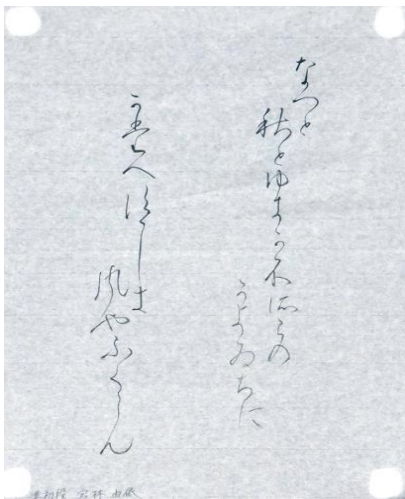 なつと
秋とゆきか不そらの
かよひちは
かたへ須ゝしき
風やふくらん